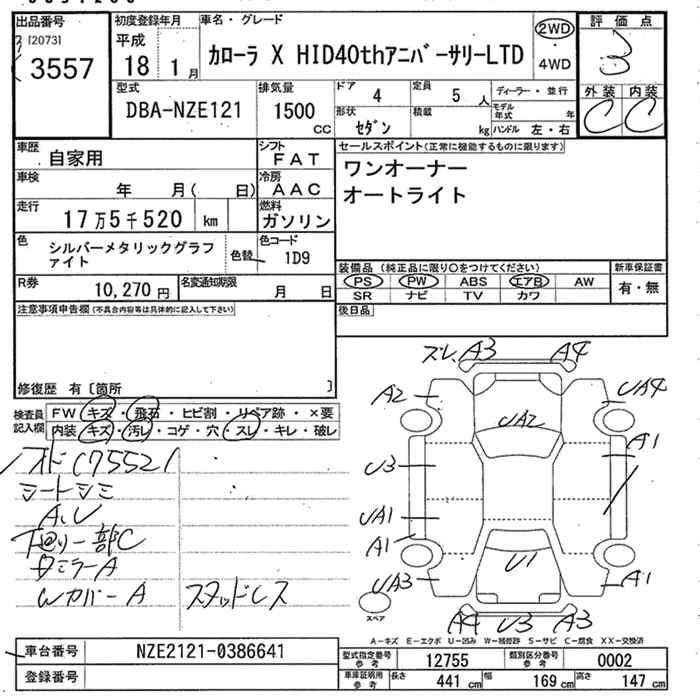 出品番号
[2073]
3557
初度登録年月
平成
18 1月
車名・グレード
カローラ X HID40thアニバーサリーLTD
2WD
・
4WD
評価点
3
外装 内装
C C
型式
DBA-NZE121
排気量
1500
CC
ドア 4
定員 5人
形状
セダン
積載 kg
ディーラー・並行
モデル年式 年
ハンドル 左・右
車歴
自家用
シフト
FAT
車検
年 月( 日)
冷房
AAC
走行
17万5千520 km
燃料
ガソリン
色
シルバーメタリックグラファイト
色替
色コード
1D9
R券
10,270円
名変通知期限
月 日
セールスポイント(正常に機能するものに限ります)
ワンオーナー
オートライト
装備品 (純正品に限り○をつけてください)
PS PW ABS エアB AW
SR ナビ TV カワ
新車保証書
有・無
後日品
注意事項申告欄(不具合内容等は具体的に記入して下さい)
修復歴 有 [箇所 ]
検査員
記入欄
FW キズ・飛石・ヒビ割・リペア跡・×要
内装 キズ・汚レ・コゲ・穴・スレ・キレ・破レ
シートシミ
A,U
下回り一部C
ミラーA
WカバーA スタッドレス
ズレ, A3 A4
A2 UA4
UA2
U3 A1
UA1
A1
U1
UA3 A1
スペア
A4 U3 A3
A-キズ E-エクボ U-凹み W-補修跡 S-サビ C-腐食 XX-交換済
車台番号 NZE2121-0386641
登録番号
型式指定番号
参考
12755
類別区分番号
参考
0002
車庫証明用
参考
長さ 441 cm 幅 169 cm 高さ 147 cm